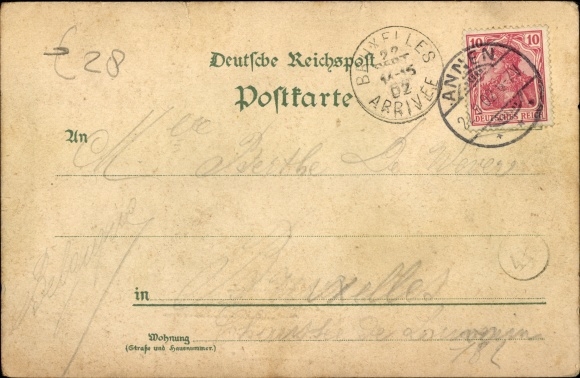 €28
Deutsche Reichspost
Postkarte
BRUXELLES
22 SEPT
14-15
02
ARRIVÉE
ANNEN
10 10
DEUTSCHES REICH
An M
Berthe De
Belgique
45
in Bruxelles
Wohnung
Chaussée de
(Straße und Hausnummer.)